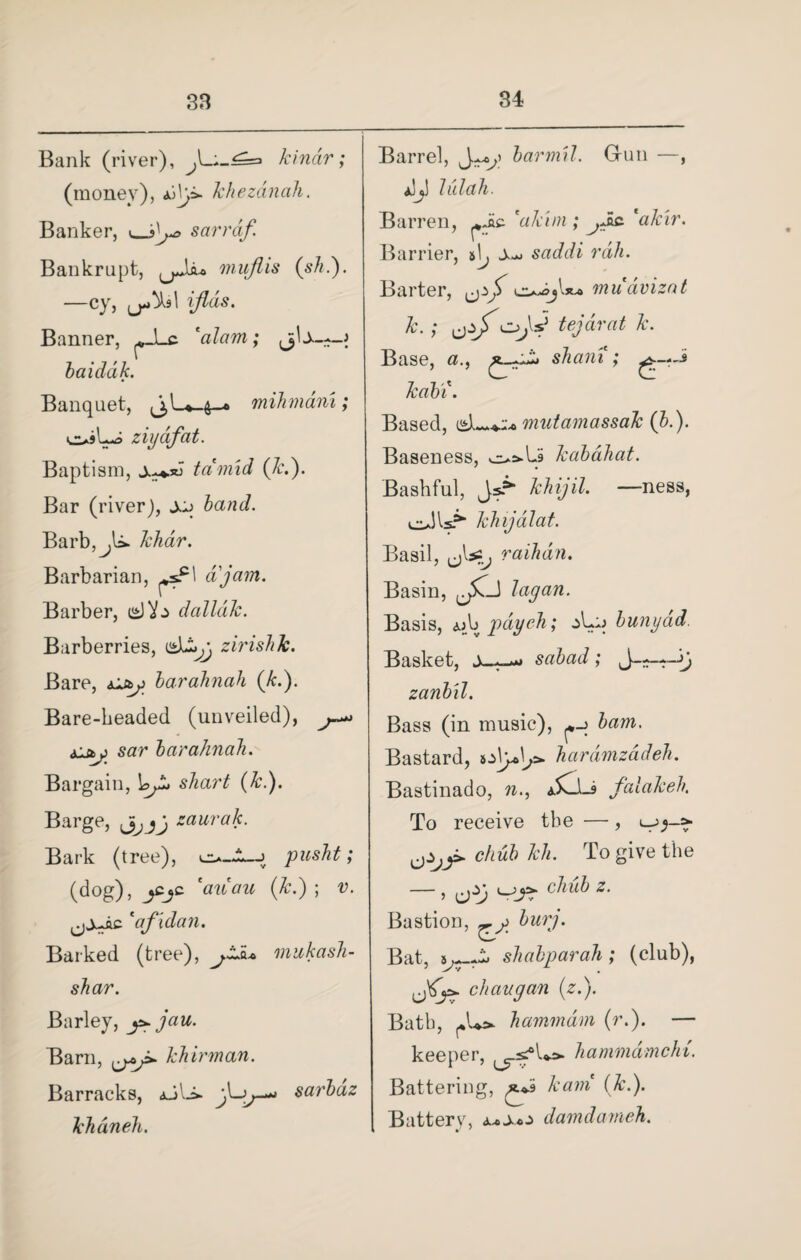 33
Bank (river), کنار kinár;
(money), خزانه khezánah.
Banker, صراف sarráf.
Bankrupt, مفلس muflis (sh.).
—cy, افلاس iflás.
Banner, علم 'alam; بیداق
baidák.
Banquet, مهمانی mihmání;
ضیافت ziyáfat.
Baptism, تعمید ta'míd (k.).
Bar (river), بند band.
Barb, خار khár.
Barbarian, اعجم a'jam.
Barber, دلاك dallák.
Barberries, زرشك zirishk.
Bare, برهنه barahnah (k.).
Bare-headed (unveiled), سر
برهنه sar barahnah.
Bargain, شرط shart (k.).
Barge, زورق zaurak.
Bark (tree), پشت pusht;
(dog), عوعو 'au'au (k.); v.
عفیدن 'afídan.
Barked (tree), مقشر mukash-
shar.
Barley, جو jau.
Barn, خرمن khirman.
Barracks, سرباز خانه sarbáz
kháneh.
34
Barrel, برمیل barmíl. Gun —,
لوله lúlah.
Barren, عقیم 'akím; عقیر 'akír.
Barrier, سد راه saddi ráh.
Barter, معاوضت کردن mu'ávizat
k.; تجارت کردن tejárat k.
Base, a., شنیع shaní'; قبیع
kabí'.
Based, متمسك mutamassak (b.).
Baseness, قباحت kabáhat.
Bashful, خجل khijil. —ness,
خجالت khijálat.
Basil, ریحان raihán.
Basin, لگن lagan.
Basis, پایه páyeh; بنیاد bunyád.
Basket, سبد sabad; زنبیل
zanbíl.
Bass (in music), بم bam.
Bastard, حرامزاده harámzádeh.
Bastinado, n., فلکه falakeh.
To receive the —, چوب
خوردن chúb kh. To give the
—, چوب زدن chúb z.
Bastion, برج burj.
Bat, شبپره shabparah; (club),
چوگان chaugan (z.).
Bath, حمام hammám (r.). —
keeper, حمامچی hammámchí.
Battering, قمع kam' (k.).
Battery, دمدمه damdameh.